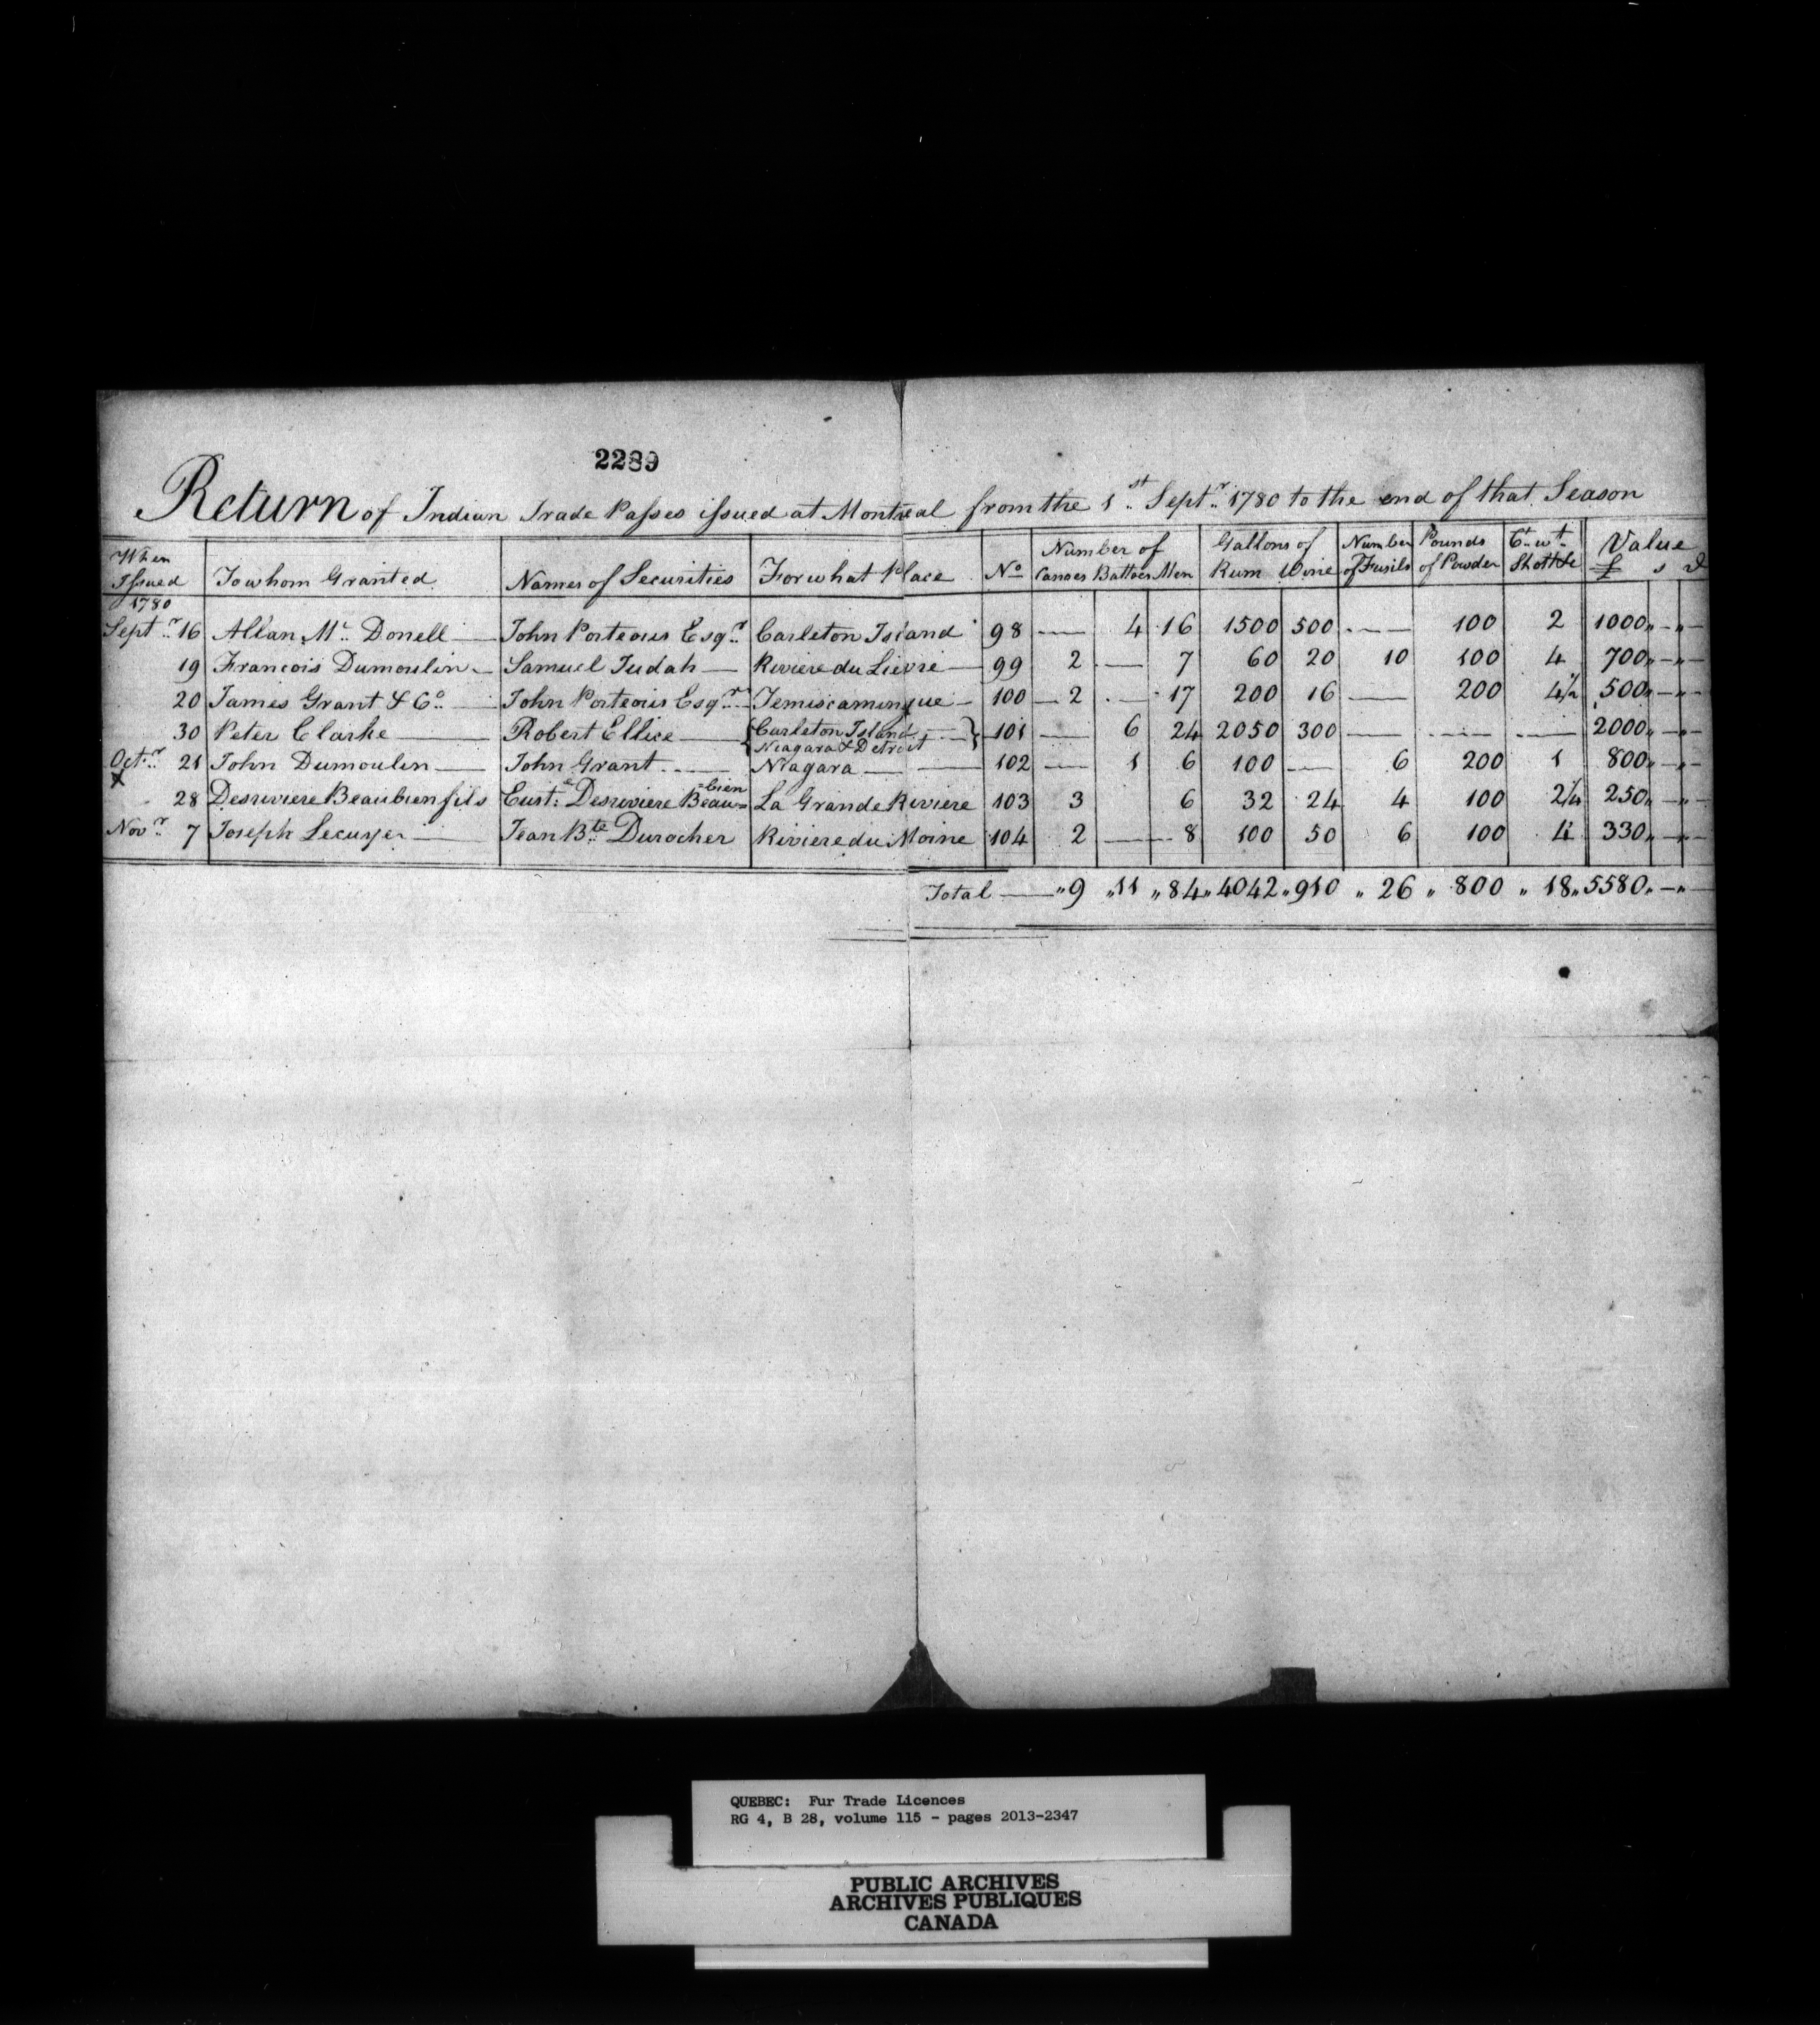 2289
Return of Indian Trade Passes issued at Montreal from the 1st Septr 1780 to the end of that Season
When Issued To whom Granted Names of Securities For what Place No Number of Canoes Battoes Men Gallons of Rum Wine Number of Fusils Pounds of Powder Ct wt Shott Value £ s d
1780
Septr 16 Allan Mc Donell — John Porteous Esqr Carleton Island 98 — 4 16 1500 500 — 100 2 1000 „ — „ —
19 Francois Dumoulin — Samuel Judah — Riviere du Lievre — 99 2 — 7 60 20 10 100 4 700 „ — „ —
20 James Grant & Co — John Porteous Esqr Temiscamingue — 100 — 2 — 17 200 16 — 200 4½ 500 „ — „ —
30 Peter Clarke — Robert Ellice — { Carleton Island Niagara & Detroit } 101 — 6 24 2050 300 — — — 2000 „ — „ —
Octr 21 John Dumoulin — John Grant — Niagara — 102 — 1 6 100 — 6 200 1 800 „ — „ —
x 28 Desriviere Beaubien fils Eust: Desriviere Beau=bien La Grande Riviere 103 3 6 32 24 4 100 2¼ 250 „ — „ —
Novr 7 Joseph Lecuyer — Jean Bte Durocher Riviere du Moine 104 2 — 8 100 50 6 100 4 330 „ — „ —
Total — „ 9 „ 11 „ 84 „ 4042 „ 910 „ 26 „ 800 „ 18 „ 5580 „ — „ —
QUEBEC: Fur Trade Licences
RG 4, B 28, volume 115 - pages 2013-2347
PUBLIC ARCHIVES
ARCHIVES PUBLIQUES
CANADA